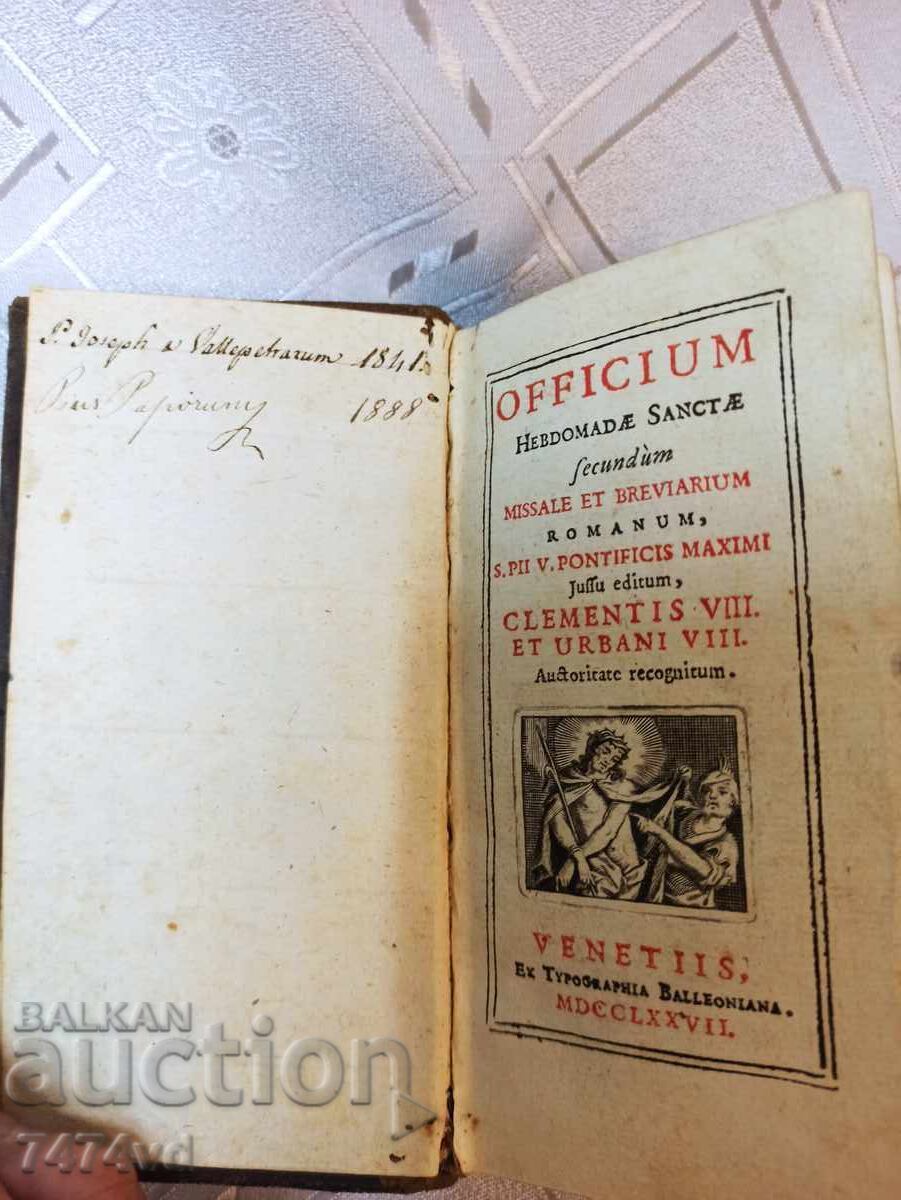 P. Joseph a Vallepetrarum 1841.
Pius 1888
OFFICIUM
HEBDOMADÆ SANCTÆ
ſecundùm
MISSALE ET BREVIARIUM
ROMANUM,
S. PII V. PONTIFICIS MAXIMI
Juſſu editum,
CLEMENTIS VIII.
ET URBANI VIII.
Auctoritate recognitum.
VENETIIS,
EX TYPOGRAPHIA BALLEONIANA.
MDCCLXXVII.
BALKAN
auction
7474vd